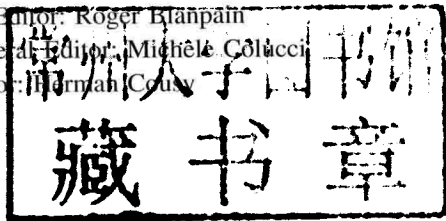 Editor: Roger Blanpain
eral Editor: Michèle Colucci
or: Herman Cousy
常州大学图书馆
藏书章